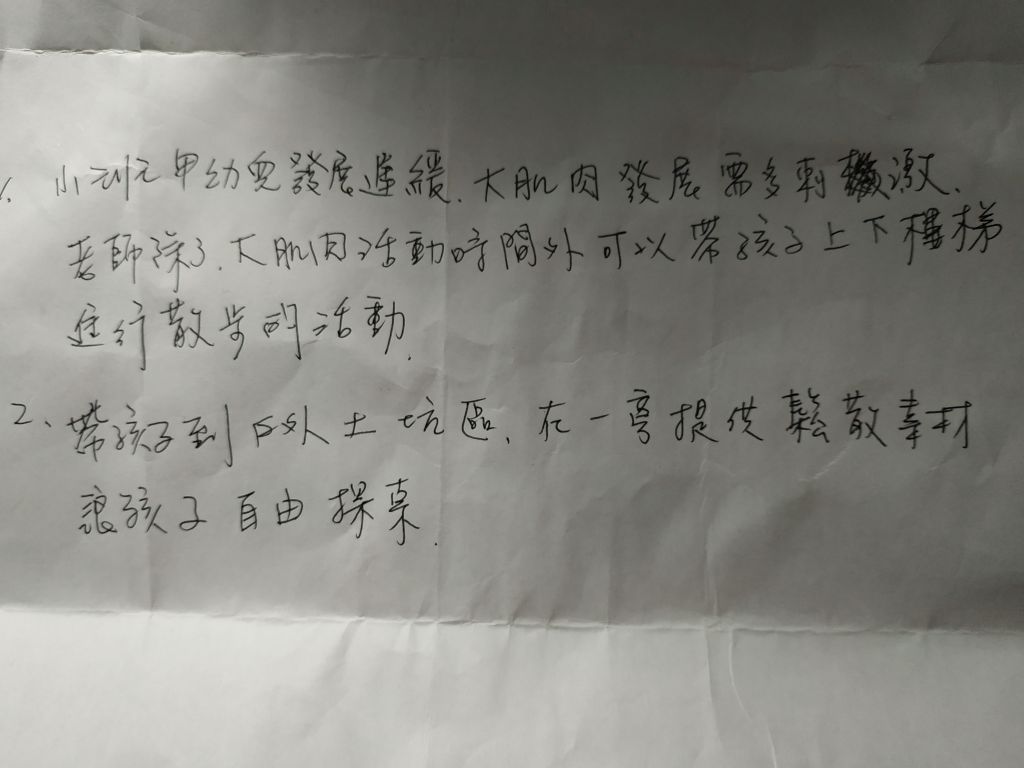 1. 小元甲幼兒發展遲緩.大肌肉發展需多刺激.
老師除了.大肌肉活動時間外可以帶孩子上下樓梯
進行散步的活動.
2、帶孩子到戶外土坑區、在一旁提供鬆散素材
讓孩子自由探索.